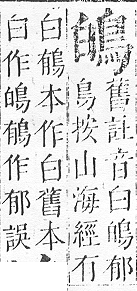 䳆
舊註音白䳆郁
鳥按山海經有
白鵺本作白舊本
白作䳆鵺作郁誤